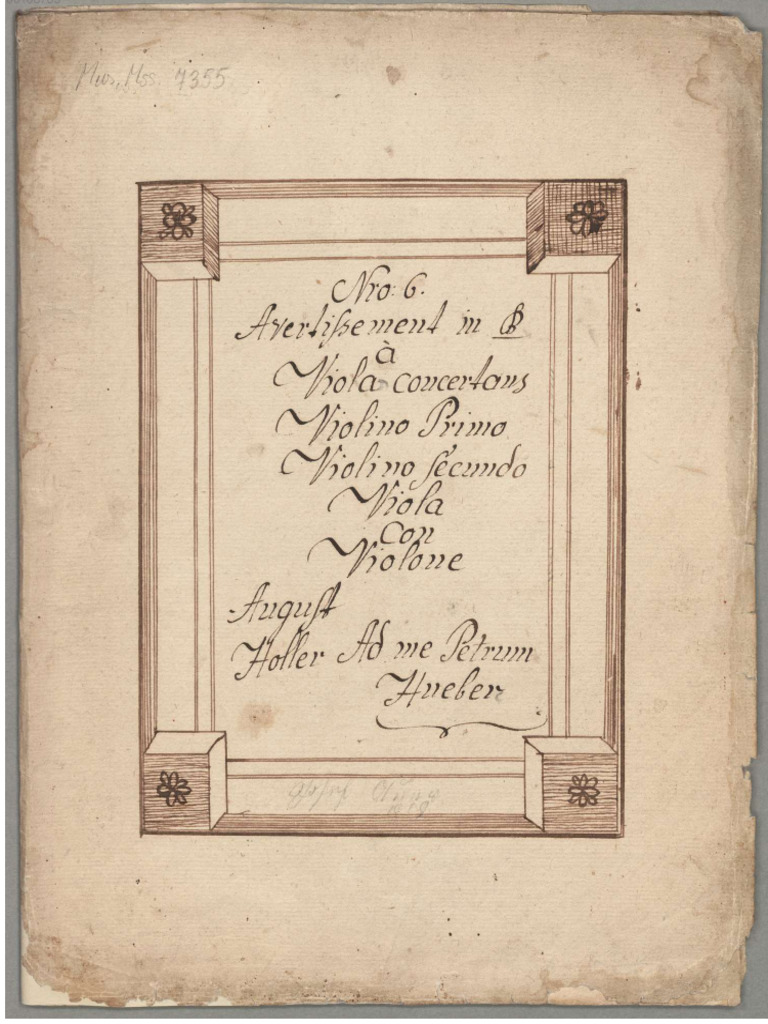 Mus. Mss. 7355
Nro: 6.
Avertissement in B
à
Viola concertans
Violino Primo
Violino secundo
Viola
con
Violone
August
Holler Ad me Petrum
Hueber